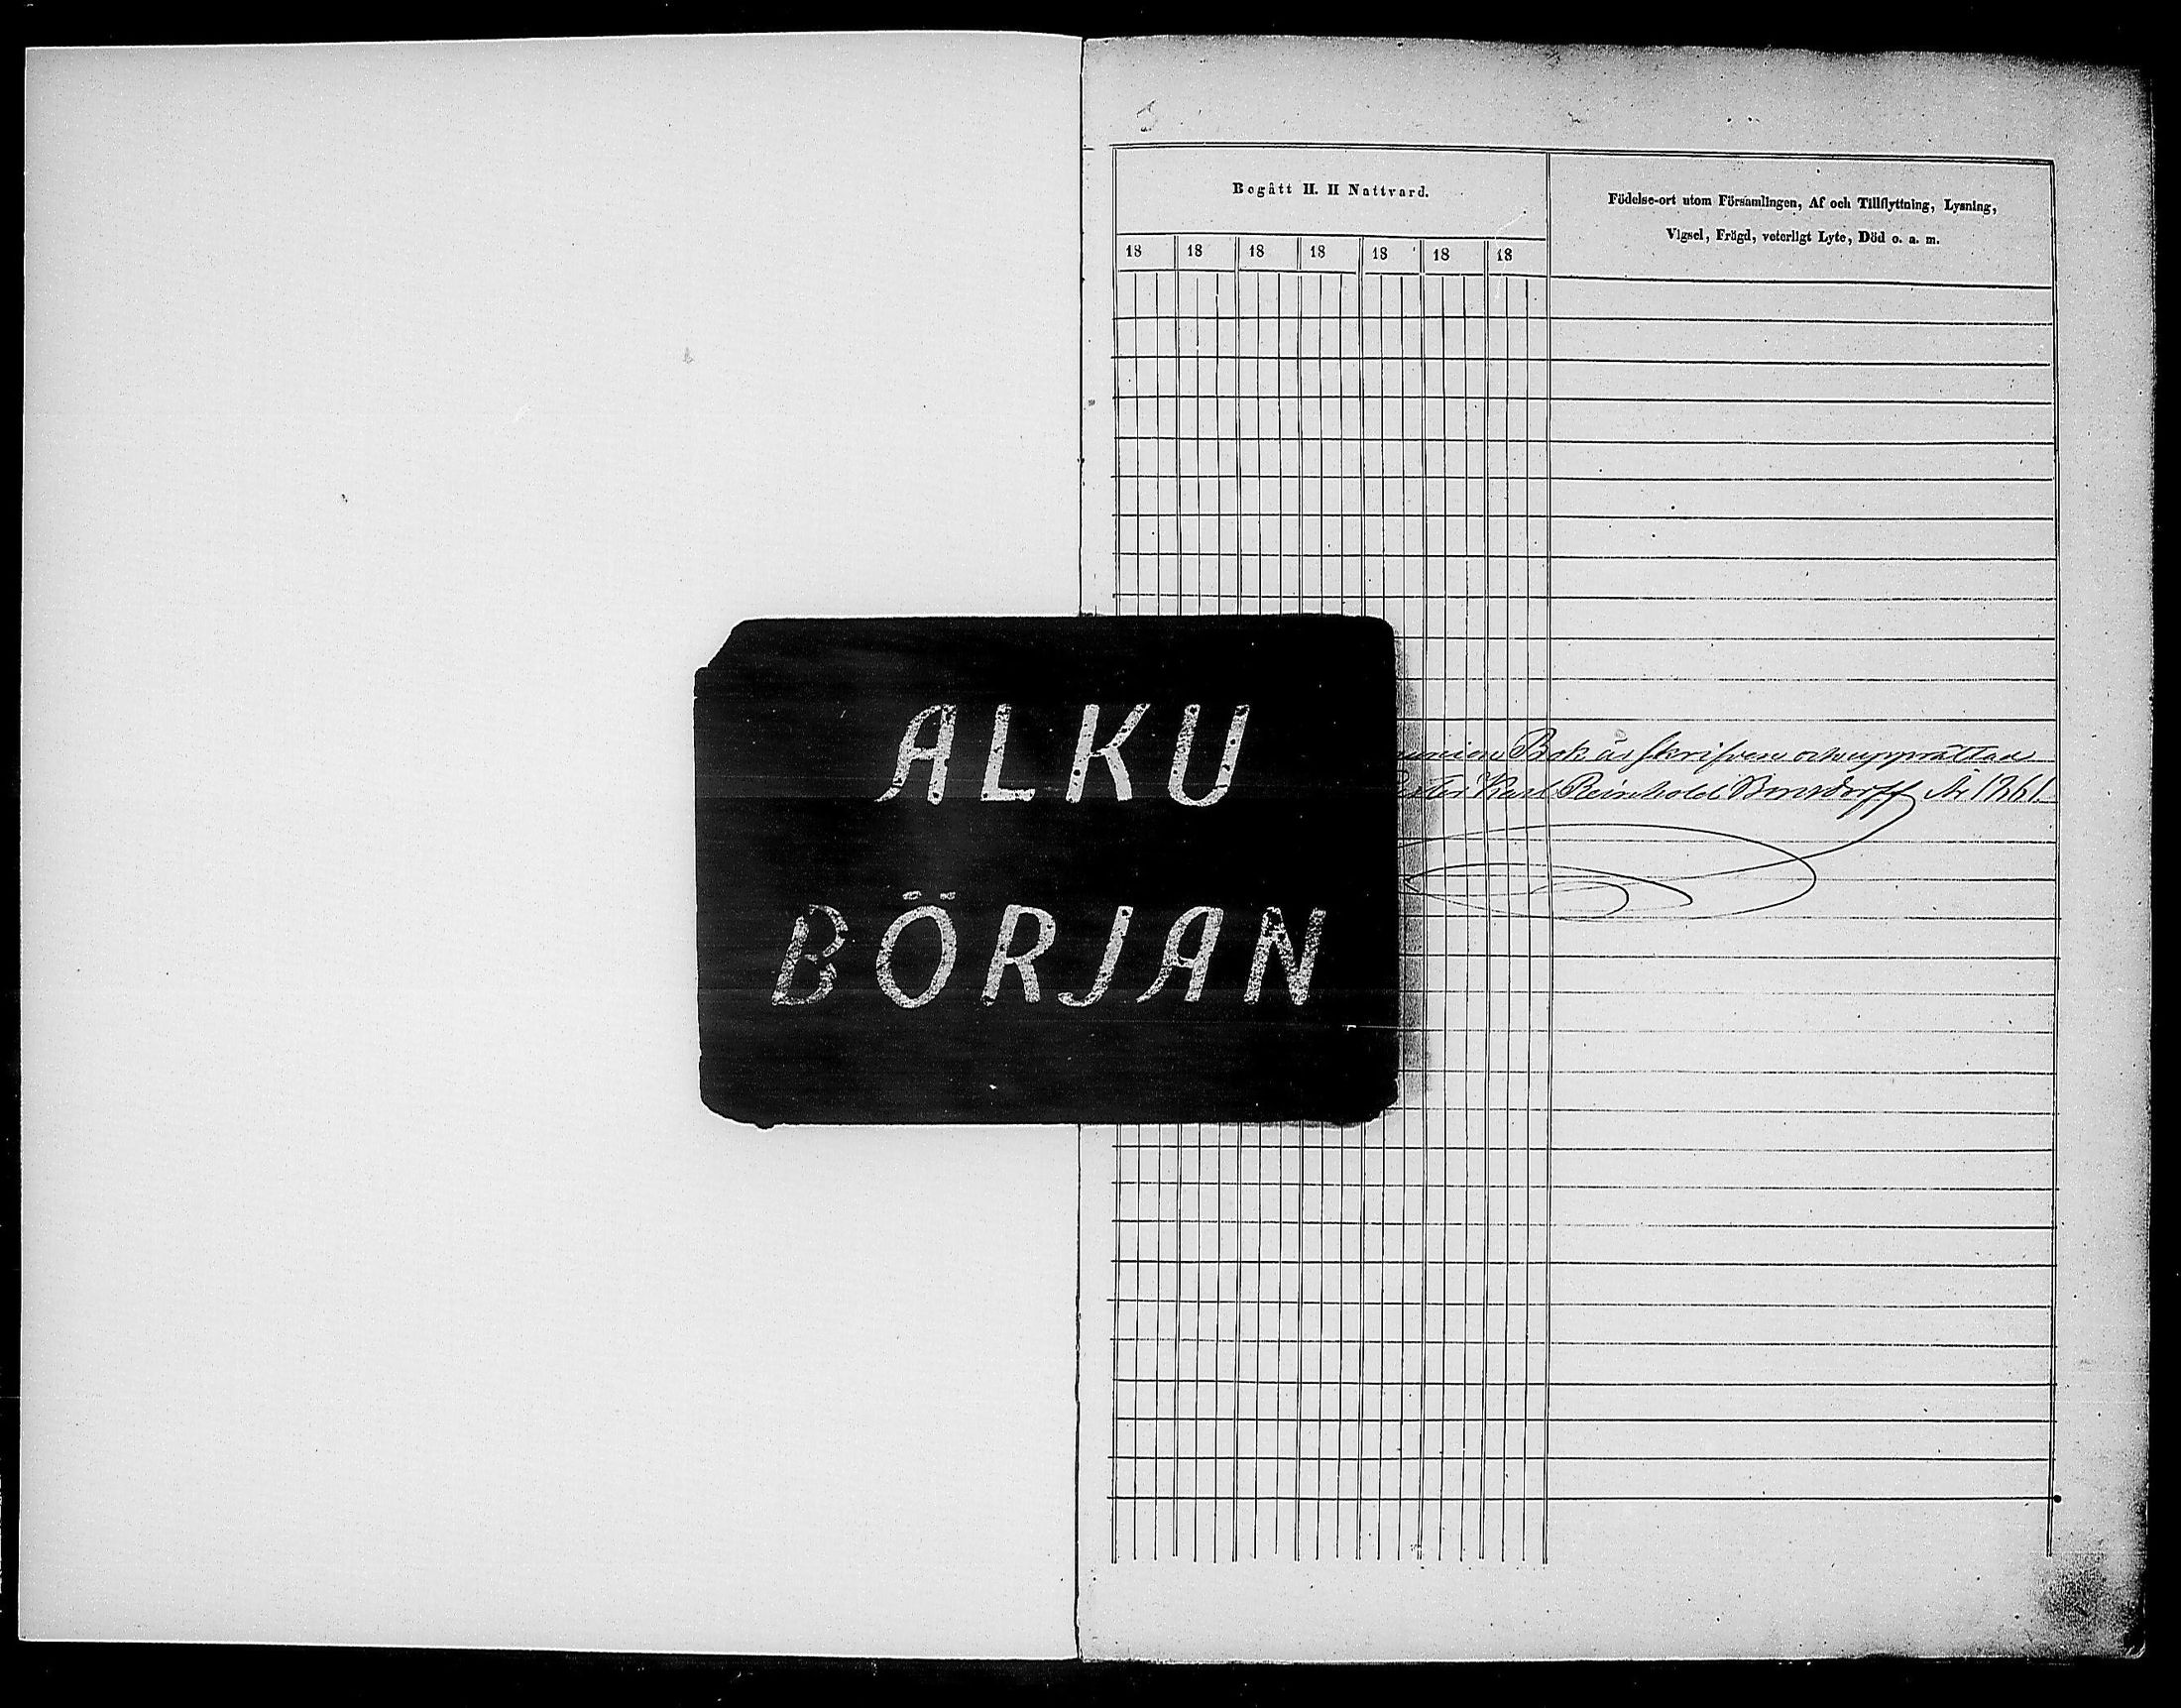 Begått H. H Nattvard.
Födelse-ort utom Församlingen, Af och Tillflyttning, Lysning,
Vigsel, Frägd, veterligt Lyte, Död o. a. m.
18 18 18 18 18 18 18
ALKU
BÖRJAN
union Bok är skrifven och upprättad
Karl Reinhold Bonsdorff År 1861.